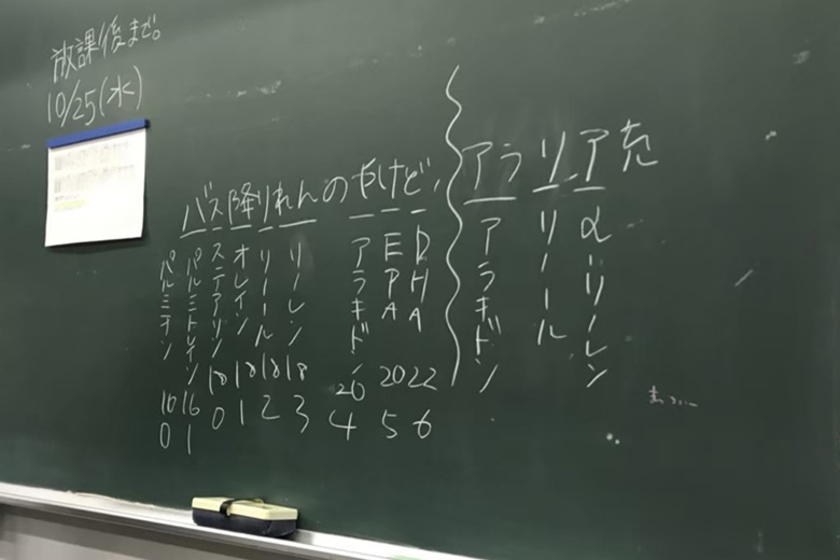 放課後まで。
10/25(水)
バス降りれんのやけど、
パルミチン 16 0
パルミトレイン 16 1
ステアリン 18 0
オレイン 18 1
リノール 18 2
リノーレン 18 3
アラキドン 20 4
EPA 20 5
DHA 22 6
アラリア克
アラキドン
リノール
α-リノーレン